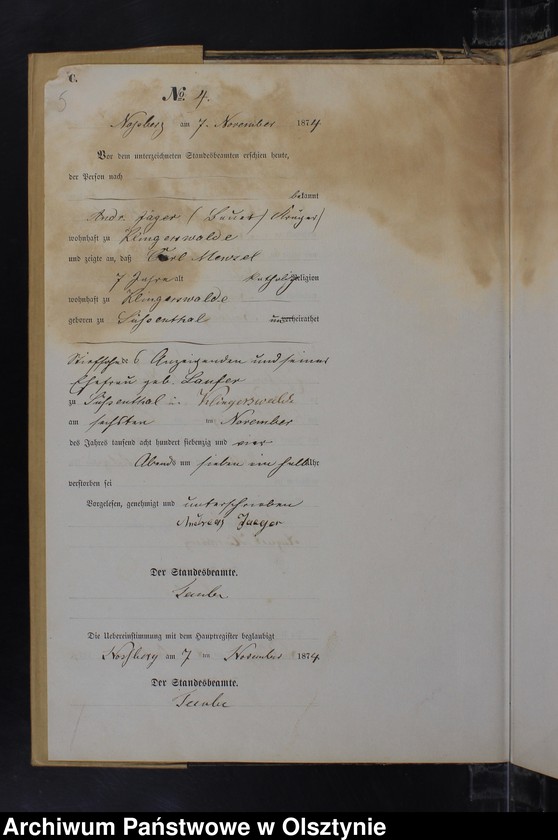 C.
5
No. 4.
am 7. November 1874
Vor dem unterzeichneten Standesbeamten erschien heute,
der Person nach
bekannt
Andr. Jäger (Bauer)
wohnhaft zu Klingerswalde
und zeigte an, daß Carl Menzel
7 Jahre alt Religion
wohnhaft zu Klingerswalde
geboren zu Süssenthal verheirathet
Anzeigenden und seiner
Ehefrau geb. Laufer
zu Süssenthal u. Klingerswalde
am sechsten November
des Jahres tausend acht hundert siebenzig und vier
Abends um sieben ein halb Uhr
verstorben sei
Vorgelesen, genehmigt und unterschrieben
Andreas Jaeger
Der Standesbeamte.
Die Uebereinstimmung mit dem Hauptregister beglaubigt
am 7 November 1874.
Der Standesbeamte.
Archiwum Państwowe w Olsztynie